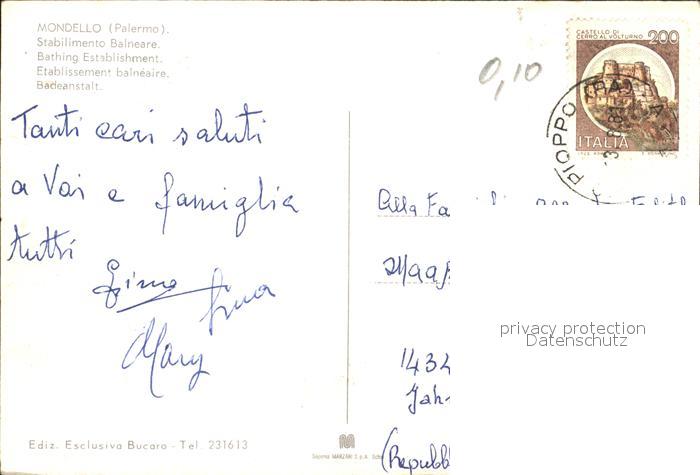 MONDELLO (Palermo).
Stabilimento Balneare.
Bathing Establishment.
Etablissement balnéaire.
Badeanstalt.
0,10
CASTELLO DI
CERRO AL VOLTURNO 200
ITALIA
PIOPPO (PA)
Tanti cari saluti
a Voi e famiglia
tutti
Gina
Mary
Alla
1434
Jah
(Repubb
privacy protection
Datenschutz
Ediz. Esclusiva Bucaro - Tel. 231613